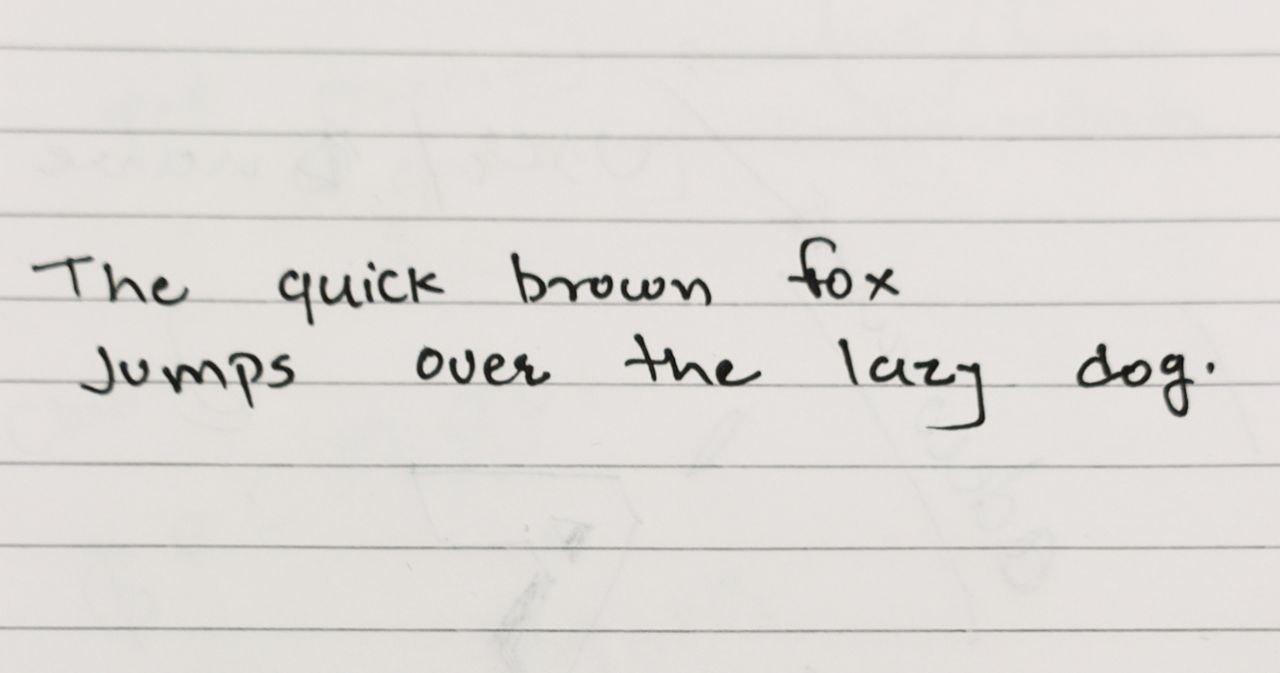 The quick brown fox
Jumps over the lazy dog.